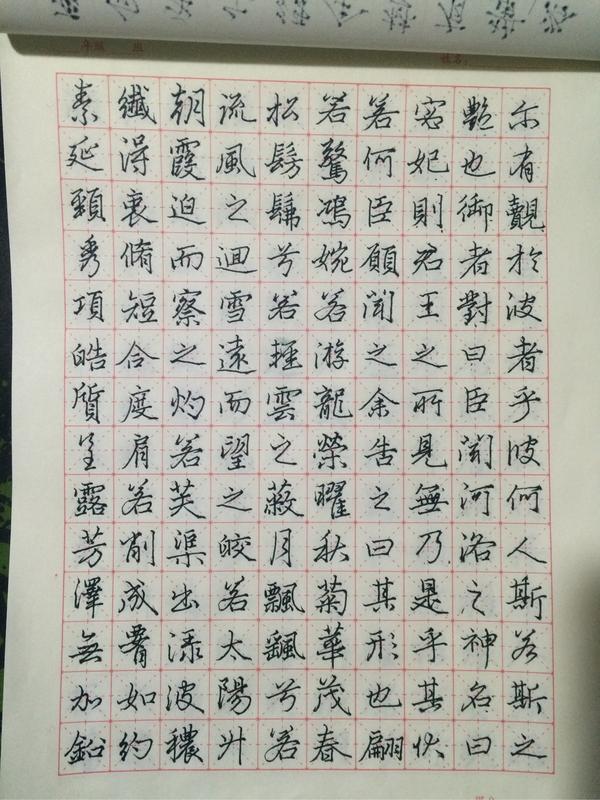 年级 班 姓名：
尓有覿於彼者乎彼何人斯若斯之
艷也御者對曰臣聞河洛之神名曰
宓妃則君王之所見無乃是乎其状
若何臣願聞之余告之曰其形也翩
若驚鴻婉若游龍榮曜秋菊華茂春
松髣髴兮若輕雲之蔽月飄飖兮若
流風之迴雪遠而望之皎若太陽升
朝霞迫而察之灼若芙渠出渌波穠
纖得衷脩短合度肩若削成腰如約
素延頸秀項皓質呈露芳澤無加鉛